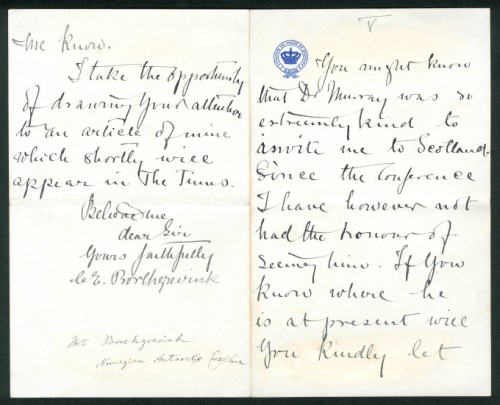 V
You might know
that Dr Murray was so
extremely kind to
invite me to Scotland.
Since the Conference
I have however not
had the honour of
seeing him. If You
know where he
is at present will
You kindly let
me know.
I take the opportunity
of drawing Your attention
to an article of mine
which shortly will
appear in The Times.
Believe me
dear Sir
Yours faithfully
C. E. Borchgrevink
Mr Borchgrevink
Norwegian Antarctic Explorer